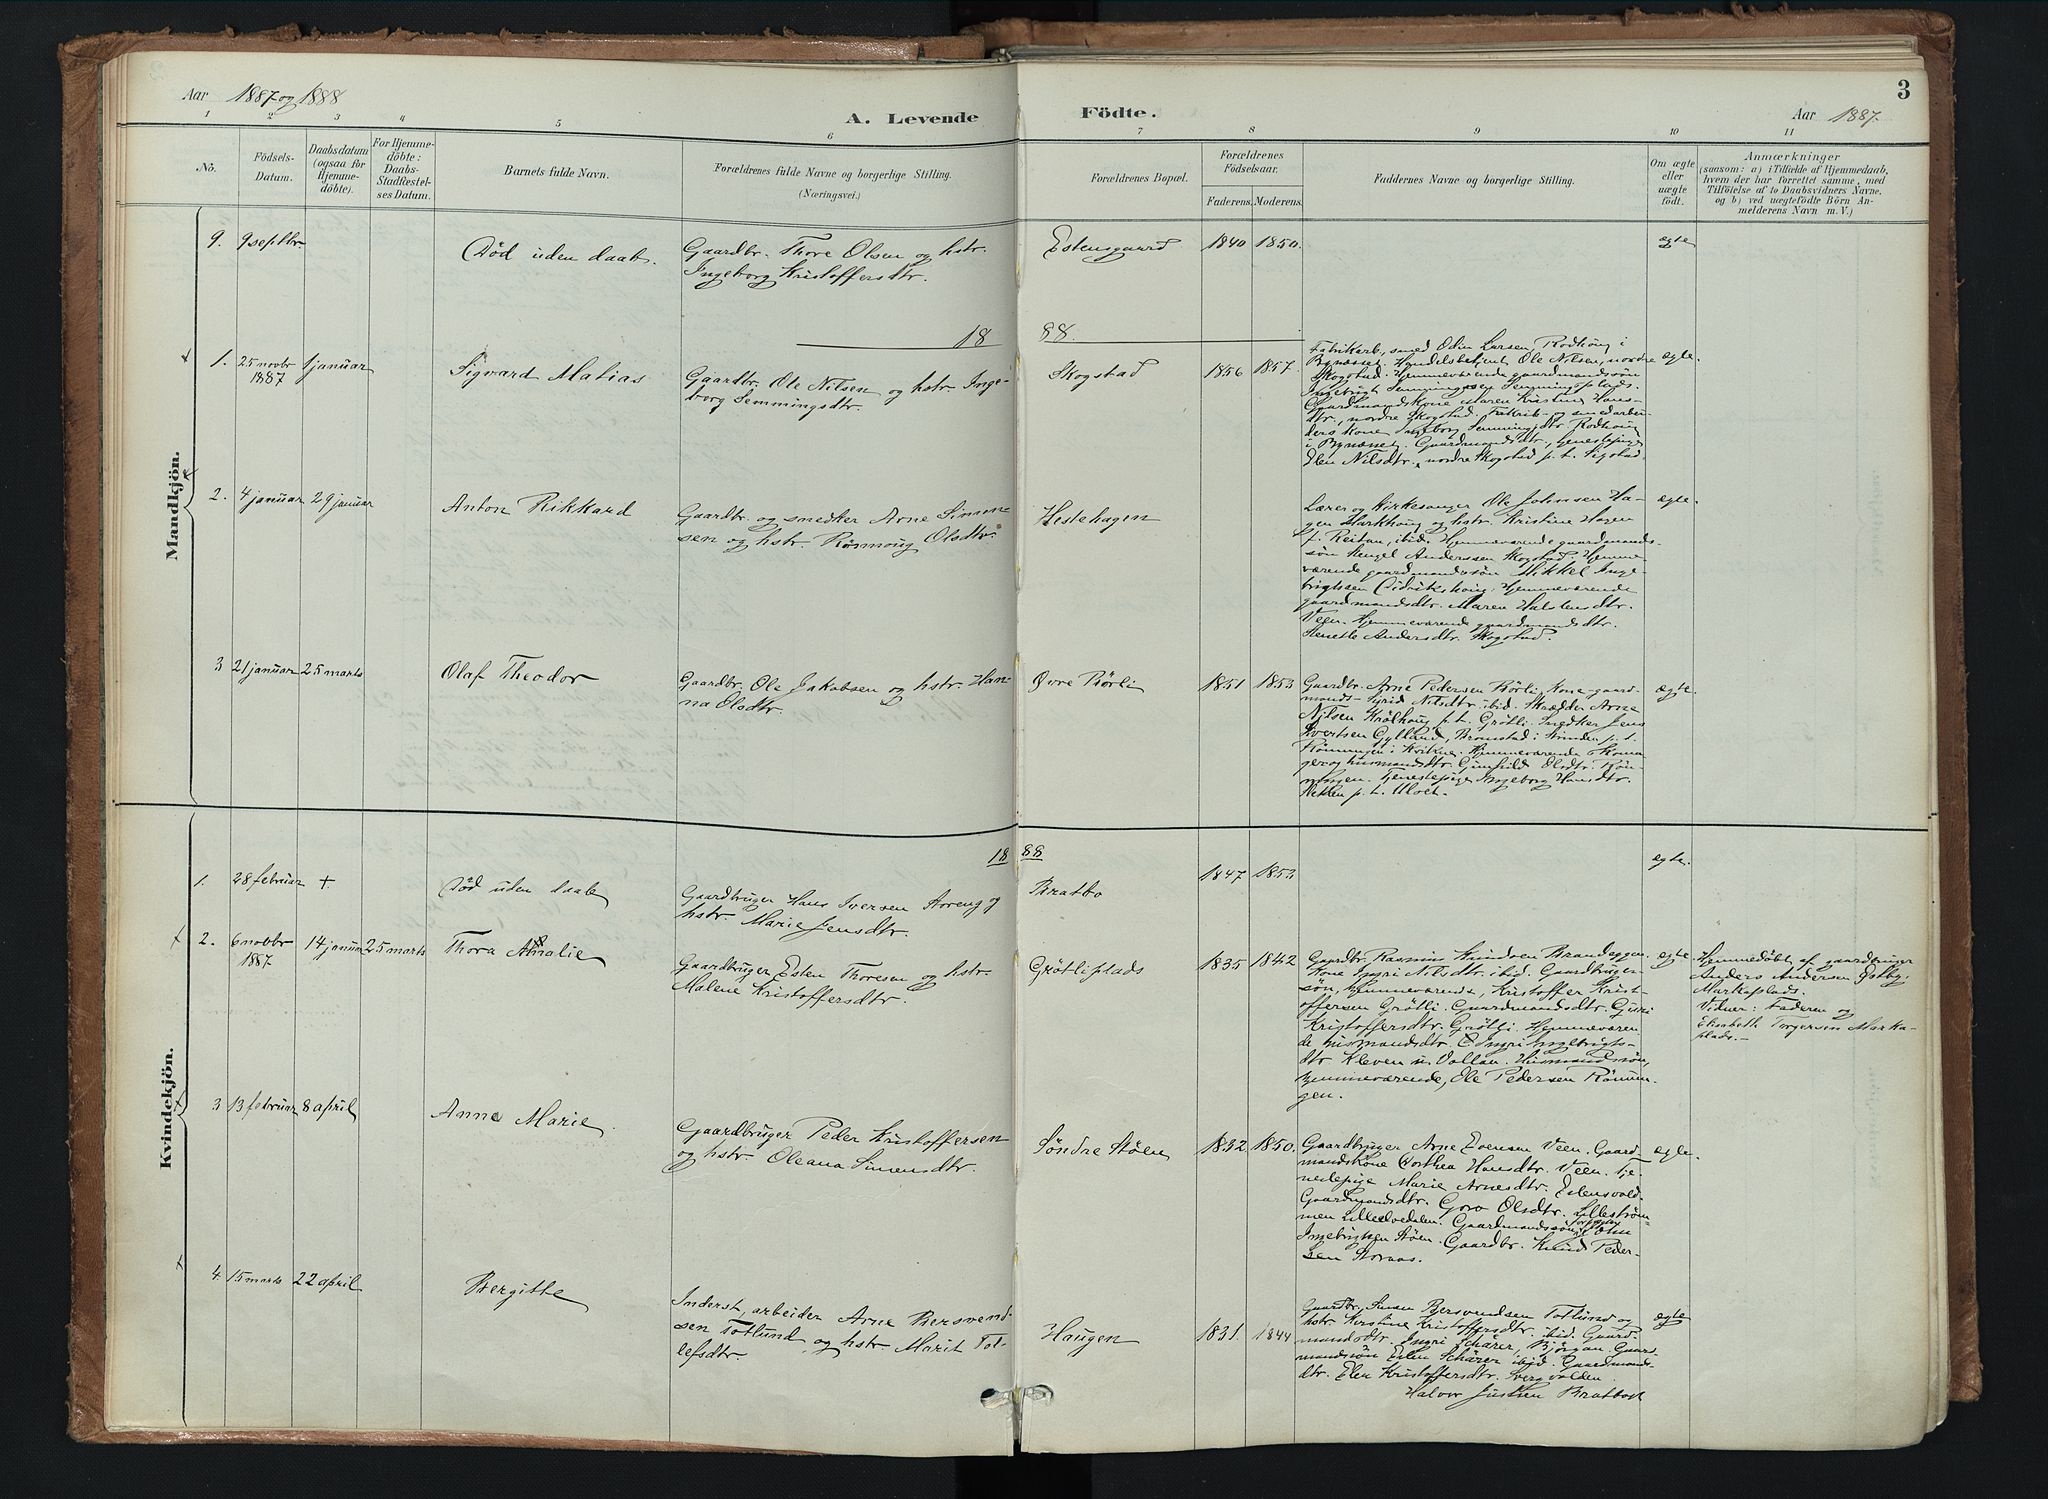 Aar 1887 og 1888
A. Levende Födte.
Aar 1887.
3
1 2 3 4 5 6 7 8 9 10 11
No.
Födsels-
Datum.
Daabsdatum
(ogsaa for
Hjemme-
döbte).
For Hjemme-
döbte:
Daabs-
StadRestel-
ses Datum.
Barnets fulde Navn.
Forældrenes fulde Navne og borgerlige Stilling.
(Næringsvei.)
Forældrenes Bopæl.
Forældrenes
Födselsaar.
Faderens. Moderens.
Faddernes Navne og borgerlige Stilling.
Om ægte
eller
uægte
födt.
Anmærkninger
(saasom: a) i Tilfælde af Hjemmedaab,
hvem der har forrettet samme, med
Tilföielse af to Daabsvidners Navne,
og b) ved uægtefödte Börn An-
melderens Navn m. V.)
Mandkjön.
9. 9 septbr
Död uden daab.
Gaardbr. Thore Olsen og hstr.
Ingeborg Kristoffersdtr.
Estensgaard
1840 1850.
egte
18 88.
1. 25 novbr
1887
1 januar
Sigvard Matias
Gaardbr. Ole Nilsen og hstr. Inge-
borg Semmingsdtr.
Skogstad
1856 1857.
Fabrikarb., smed Odin Larsen, Rodhoug i
Bynæsset. Handelsbetjent Ole Nilsen, nordre
Skogstad. Hjemmeværende gaardmandssön
Ingebrigt Semmingsen Semmingsplads.
Gaardmandskone Maren Kristine Hans-
dtr., nordre Skogstad. Fabrik- og smedarbei-
ders kone Ingeborg Semmingsdtr. Rodhoug
i Bynæsset. Gaardmandsdtr., tjenestepige
Elen Nilsdtr., nordre Skogstad p. t. Sigstad.
egte.
2. 4 januar 29 januar
Anton Rikkard
Gaardbr. og snedker Arne Simen-
sen og hstr. Rönnoug Olsdtr.
Hestehagen
Lærer og Kirkesanger Ole Johnsen Ha-
gen Markhoug og hstr. Kristine Hagen
f. Reitan, ibid. Hjemmeværende gaardmands-
sön Stengel Anderssen Skogstad. Hjemme-
værende gaardmandssön Mikkel Inge-
brigtsen Hjemmeværende
gaardmandsdtr. Maren Halstensdtr.
Veen. Hjemmeværende gaardmandsdtr.
Anethe Andersdtr. Skogstad.
ægte.
3 21 januar 25 marts
Olaf Theodor
Gaardbr. Ole Jakobsen og hstr. Han-
na Olsdtr.
Øvre Rörli
1851 1853
Gaardbr. Arne Pedersen Rörli, Kone gaard-
mands- Sirid Nilsdtr. ibid. Skrædder Arne
Nilsen Krölhoug p. t. Grötli. Snedker Jens
Evertsen Gylland, Bromstad i Strinden p. t.
Rönningen i Kvikne. Hjemmeværende Skoma-
ger og husmandsdtr. Gunhild Olsdtr. Rön-
ningen. Tjenestepige Ingeborg Hansdtr.
p. t. Uloet.
ægte.
Kvindekjön.
18 88
1. 28 februar +
Död uden daab
Gaardbruger Hans Iversen Storeng og
hstr. Marie Jensdtr.
Bratbo
1847 1853
egte.
2. 6 novbr
1887
14 januar 25 marts
Thora Amalie
Gaardbruger Esten Thoresen og hstr.
Malene Kristoffersdtr.
Grötliplads
1835 1842
Gaardbr. Rasmus Knudsen Brandeggen
Kone Ingri Nilsdtr. ibid. Gaardbruger-
sön, hjemmeværende, Kristoffer Krist-
offersen Grötli. Gaardmandsdtr. Guri
Kristoffersdtr. Grötli. Hjemmeværen-
de husmandsdtr. Ingri Ingebrigts-
dtr. Kleven u. Vollan. Husmandssön,
hjemmeværende, Ole Pedersen Rönnin-
gen.
egte.
Hjemmedöbt af gaardbruger
Anders Andersen Estby,
Markaplads.
Vidner: Faderen og
Elisabeth Torgersen Marka-
plads.
3 13 februar 8 april
Anne Marie
Gaardbruger Peder Kristoffersen
og hstr Oleana Simensdtr.
Söndre Stöen
1832 1850.
Gaardbruger Arne Evensen Veen. Gaard-
mandskone Dorthea Hansdtr. Veen. Tje-
nestepige Marie Arnesdtr. Estensvold.
Gaardmandsdtr. Goro Olsdtr. Lilleström-
men Lilleelvedalen. Gaardmandssön John
Ingebrigtsen Stöen. Gaardbr. Knud Peder-
sen Storaas.
egte.
4. 15 marts 22 april
Bergitte
Inderst, arbeider Arne Bersvend-
sen Totlund, og hstr Marit Tol-
lefsdtr.
Haugen
1831. 1844
Gaardbr. Simen Bersvendsen Totlund og
hstr Kerstine Kristoffersdtr. ibid. Gaard-
mandsdtr. Ingri Schärer, Björgan. Gaard-
mandssön Esten Schärer ibid. Gaardmands-
dtr. Elen Kristoffersdtr. Svergvolden.
Halvor Justsen Bratbost
egte